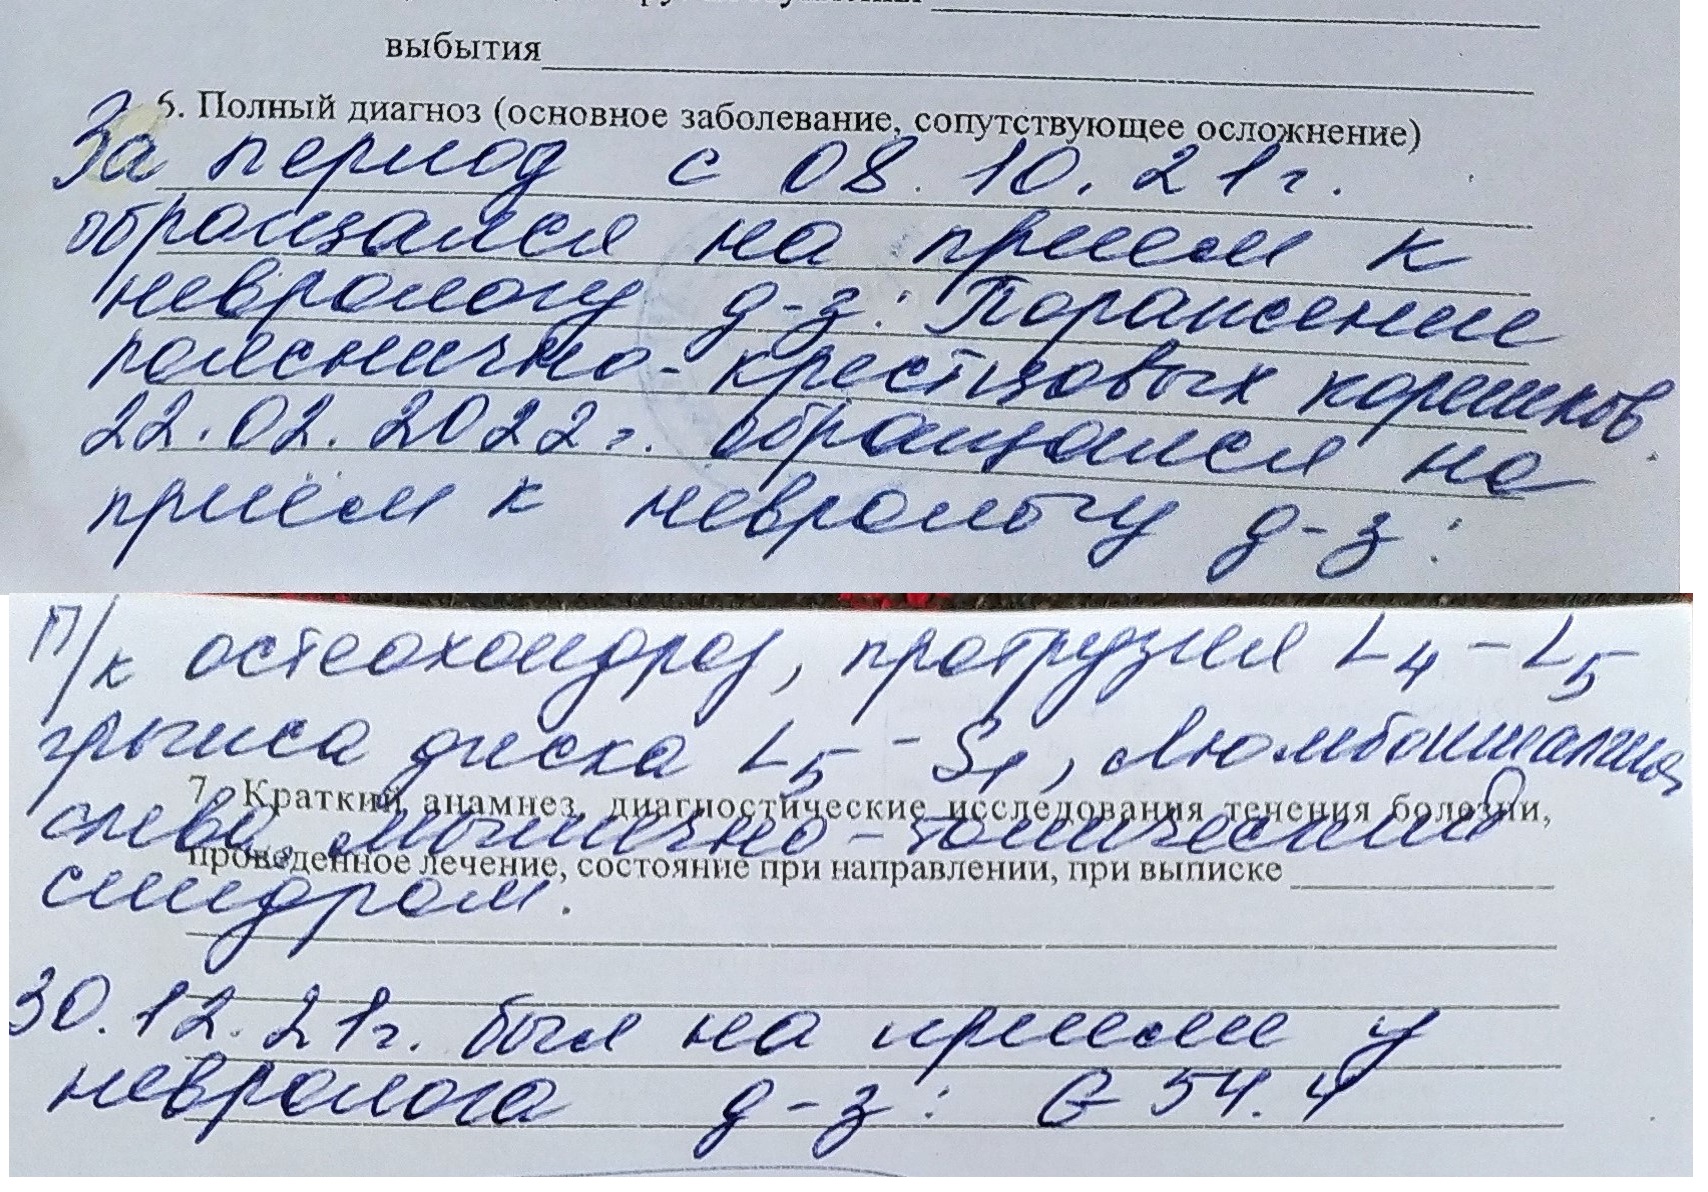 выбытия
6. Полный диагноз (основное заболевание, сопутствующее осложнение)
За период с 08.10.21г.
обращался на прием к
неврологу д-з: Поражение
пояснично-крестцовых корешков.
22.02.2022г. обращался на
приём к неврологу д-з:
П/к остеохондроз, протрузия L4-L5
грыжа диска L5-S1, Люмбоишалгия
слева, мышечно-тонический
7. Краткий анамнез, диагностические исследования течения болезни,
проведенное лечение, состояние при направлении, при выписке
синдром.
30.12.21г. был на приеме у
невролога д-з: G 54.4